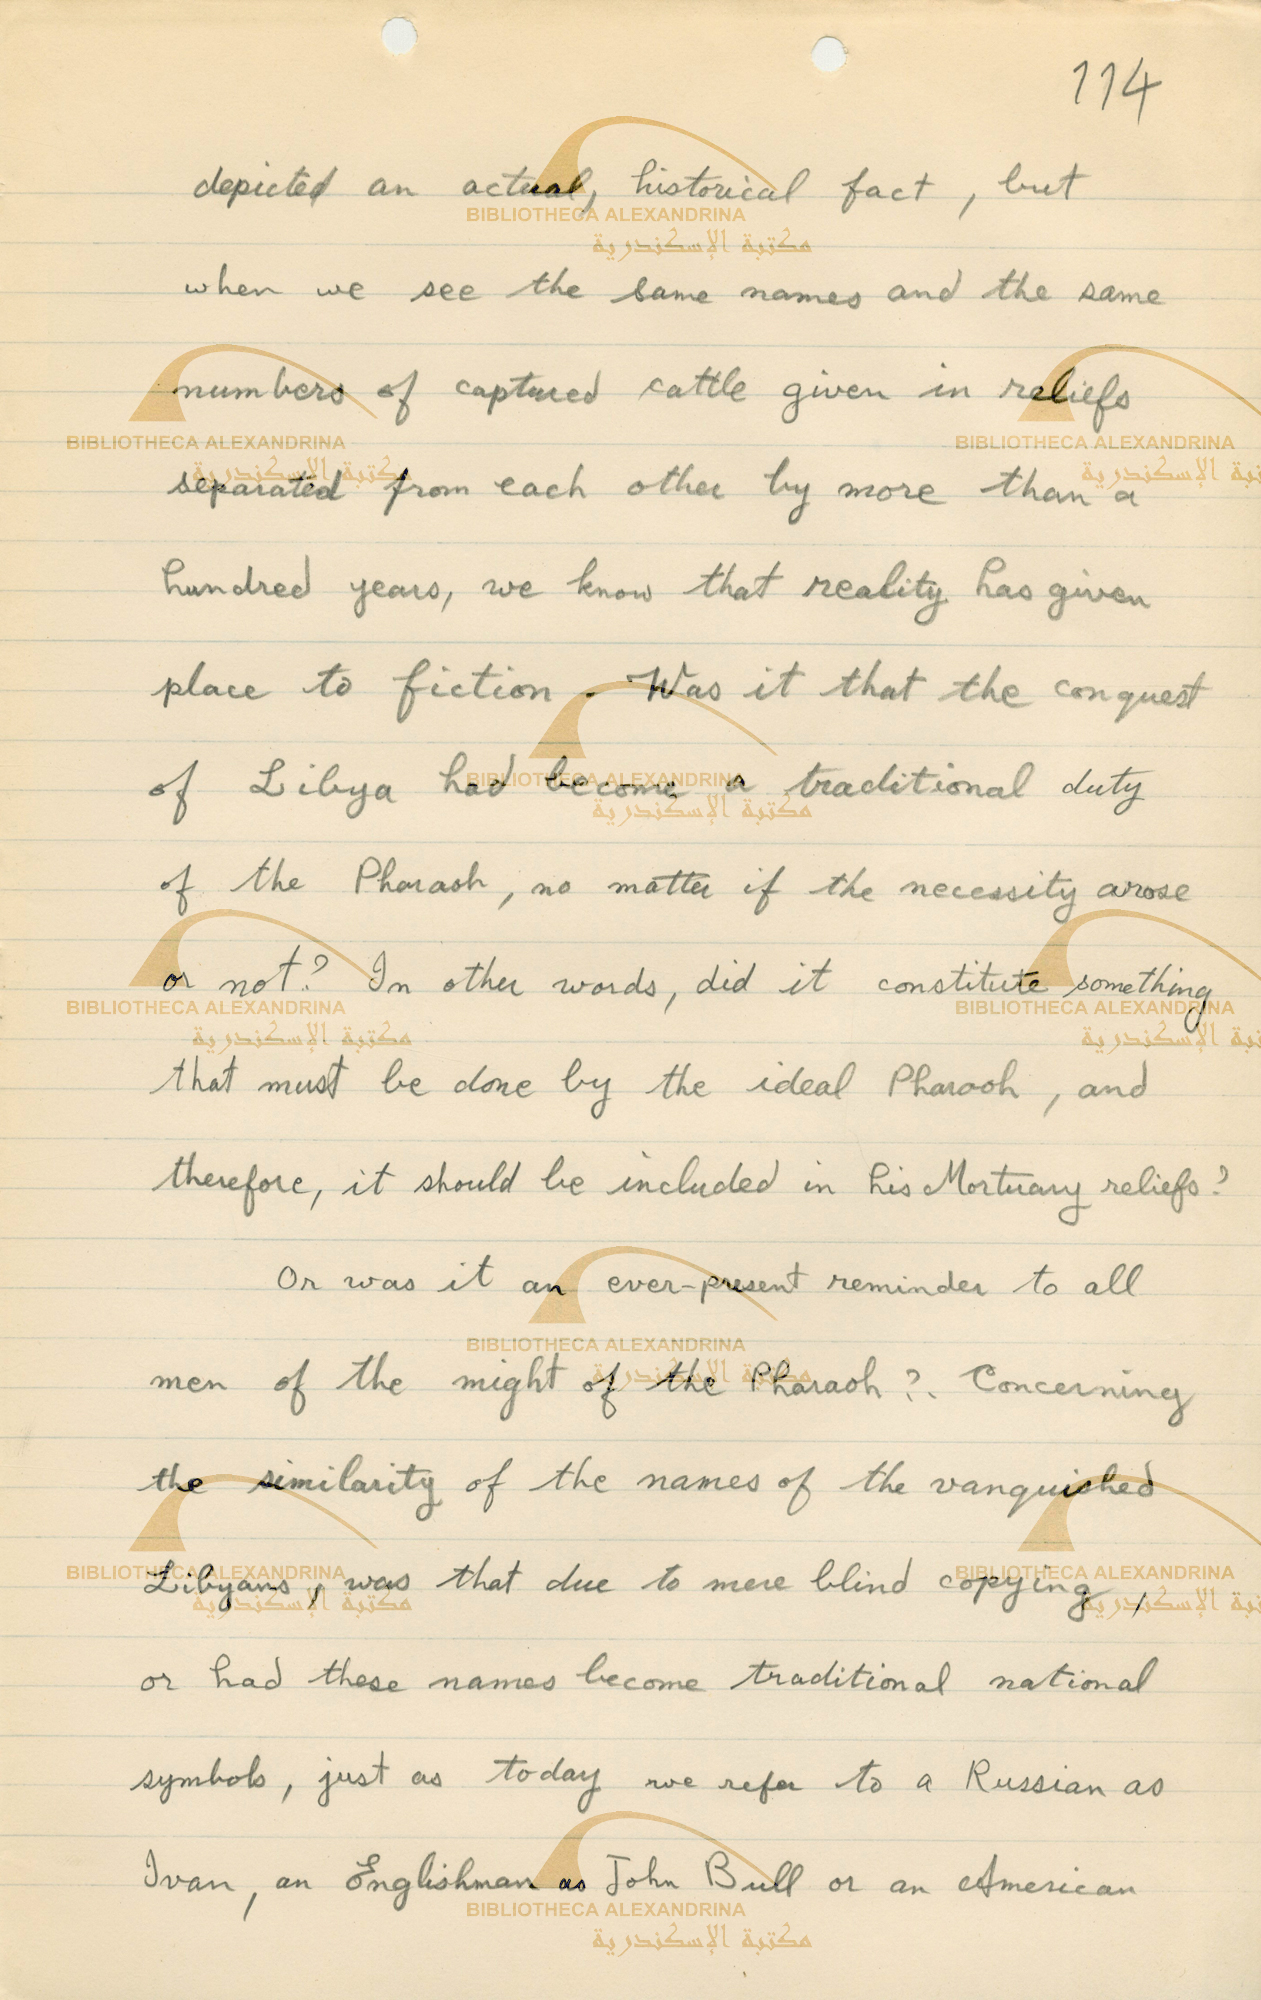 114
depicted an actual, historical fact, but
when we see the same names and the same
numbers of captured cattle given in reliefs
separated from each other by more than a
hundred years, we know that reality has given
place to fiction. Was it that the conquest
of Libya had become a traditional duty
of the Pharaoh, no matter if the necessity arose
or not? In other words, did it constitute something
that must be done by the ideal Pharaoh, and
therefore, it should be included in his Mortuary reliefs?
Or was it an ever-present reminder to all
men of the might of the Pharaoh?. Concerning
the similarity of the names of the vanquished
Libyans, was that due to mere blind copying,
or had these names become traditional national
symbols, just as today we refer to a Russian as
Ivan, an Englishman as John Bull or an American
BIBLIOTHECA ALEXANDRINA
مكتبة الإسكندرية